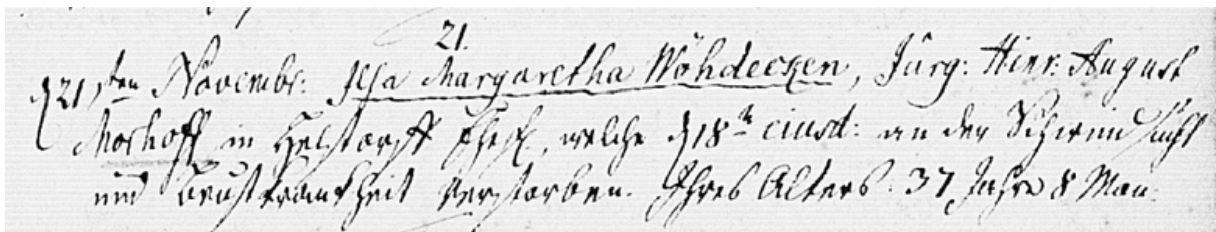 21.
d 21sten Novembr: Ilsa Margaretha Wöhdecken, Jürg: Hinr: August
Morhoff in Helstorff Ehefr, welche d 18t. eiusd: an der Schwindsucht
und Brustkrankheit verstorben. Ihres Alters: 37 Jahre 8 Mon: